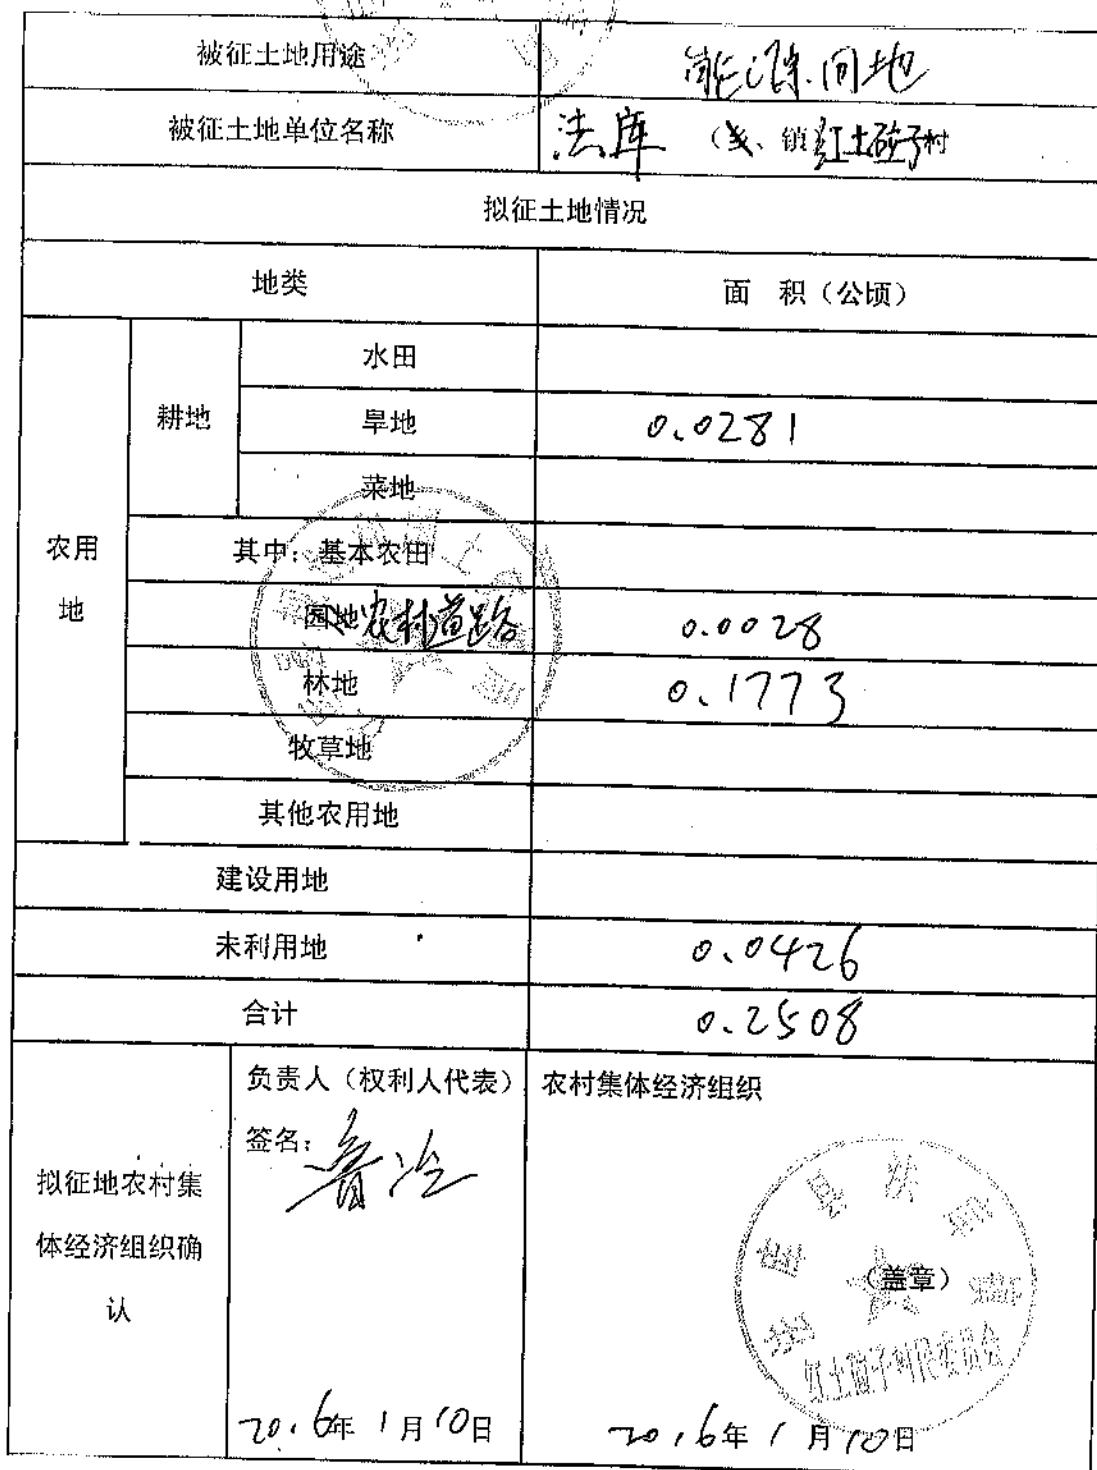 被征土地用途 能源用地
被征土地单位名称 法库 （乡、镇）红土砬子村
拟征土地情况
地类 面 积（公顷）
农用地 耕地 水田
旱地 0.0281
菜地
其中：基本农田
园地 农村道路 0.0028
林地 0.1773
牧草地
其他农用地
建设用地
未利用地 0.0426
合计 0.2508
拟征地农村集体经济组织确认
负责人（权利人代表）
签名：
2016年1月10日
农村集体经济组织
（盖章）
2016年1月10日